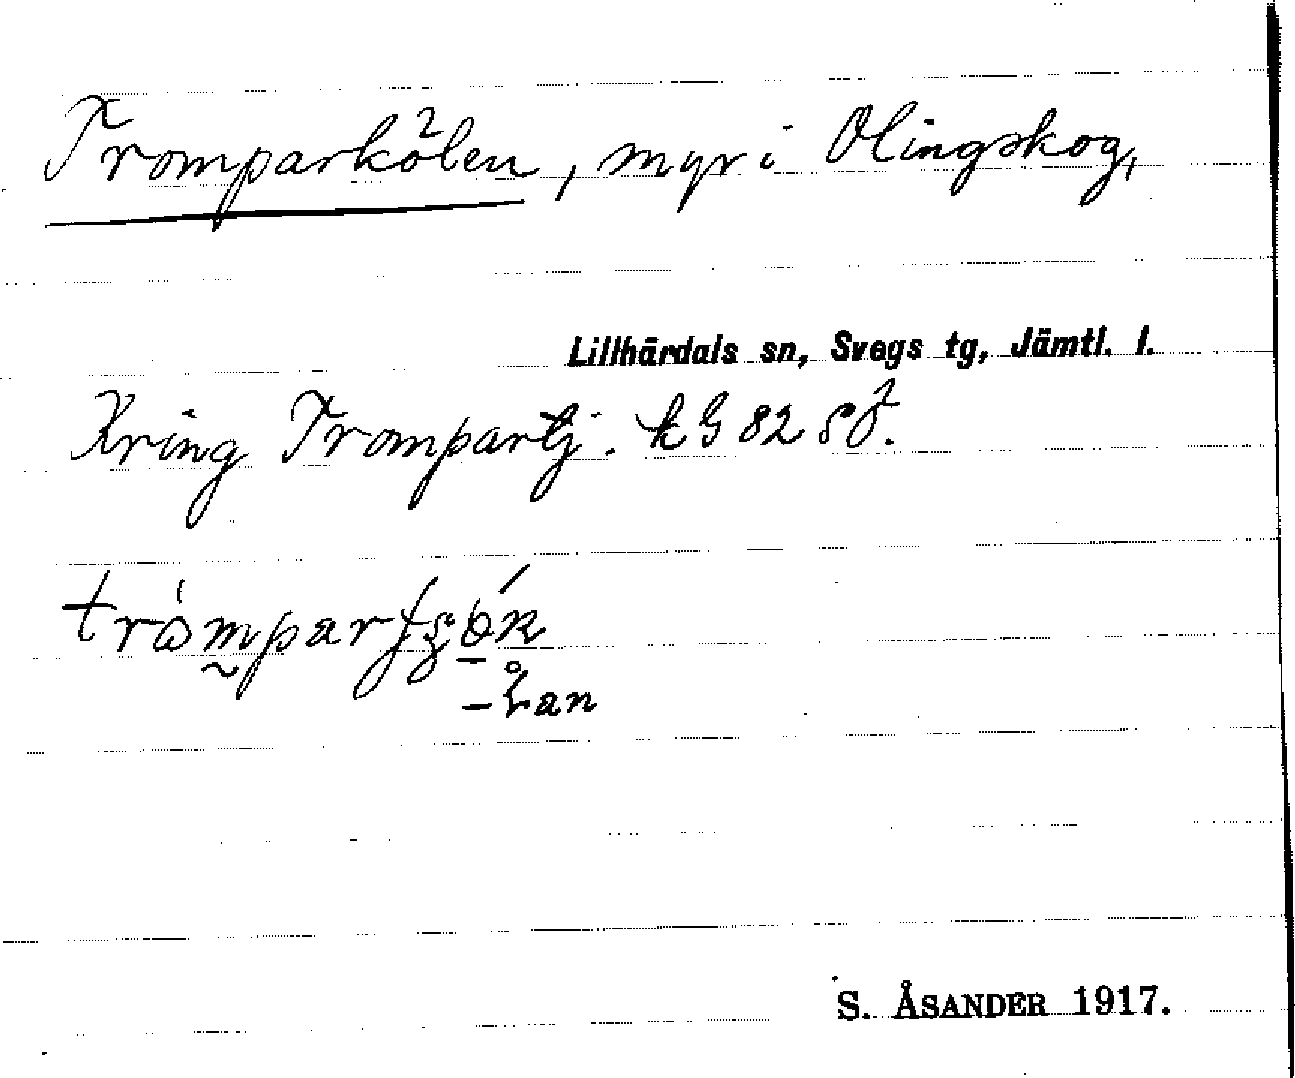 Tromparkölen, myr i Olingskog,
Lillhärdals sn, Svegs tg, Jämtl. l.
Kring Trompartj. k G 82 SÖ.
-an
S. ÅSANDER 1917.